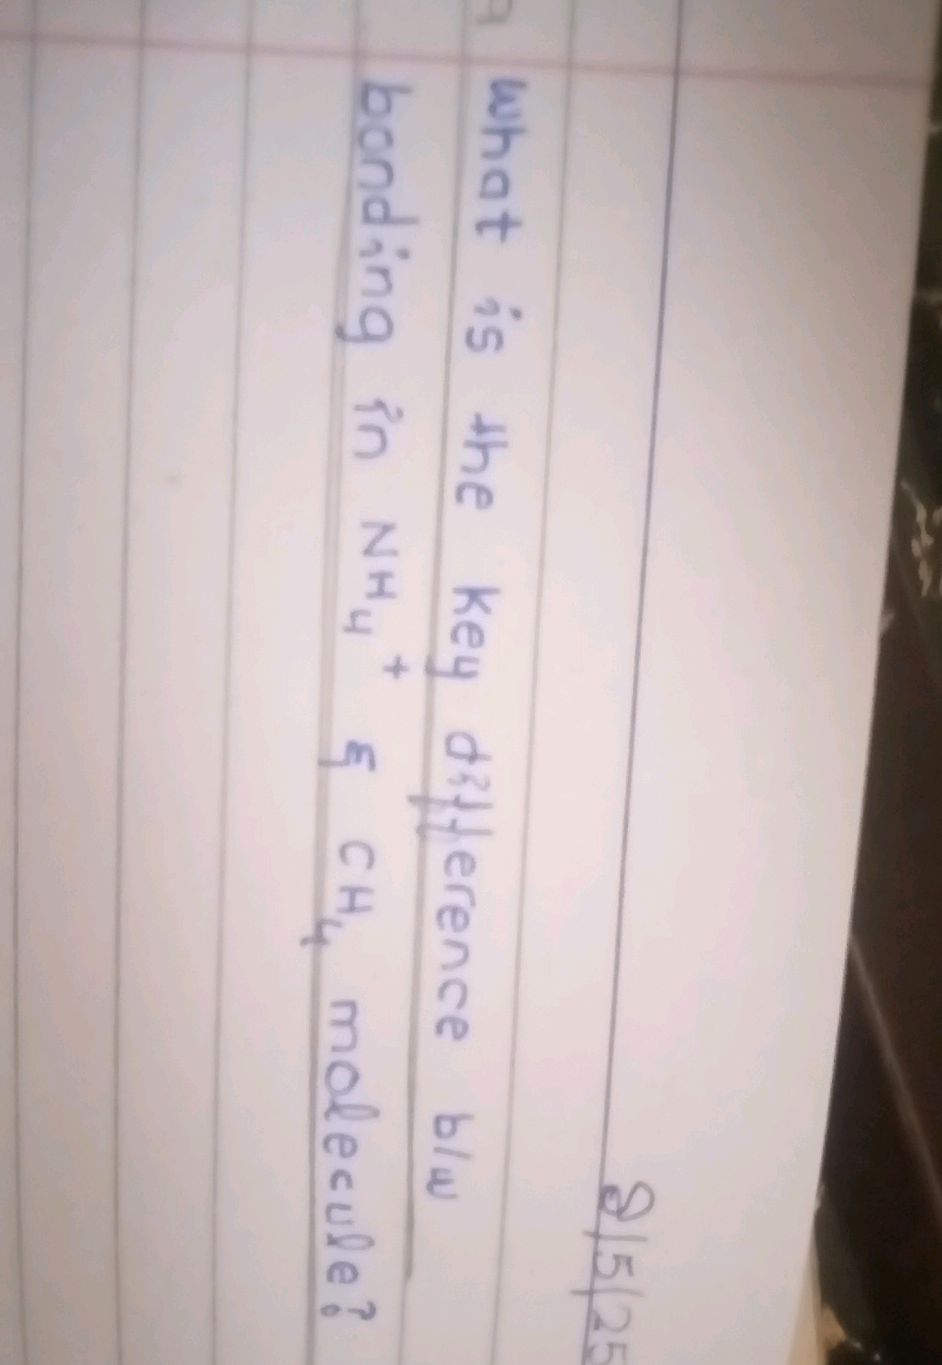 8/5/25
What is the key difference b/w
bonding in NH₄⁺ & CH₄ molecule?